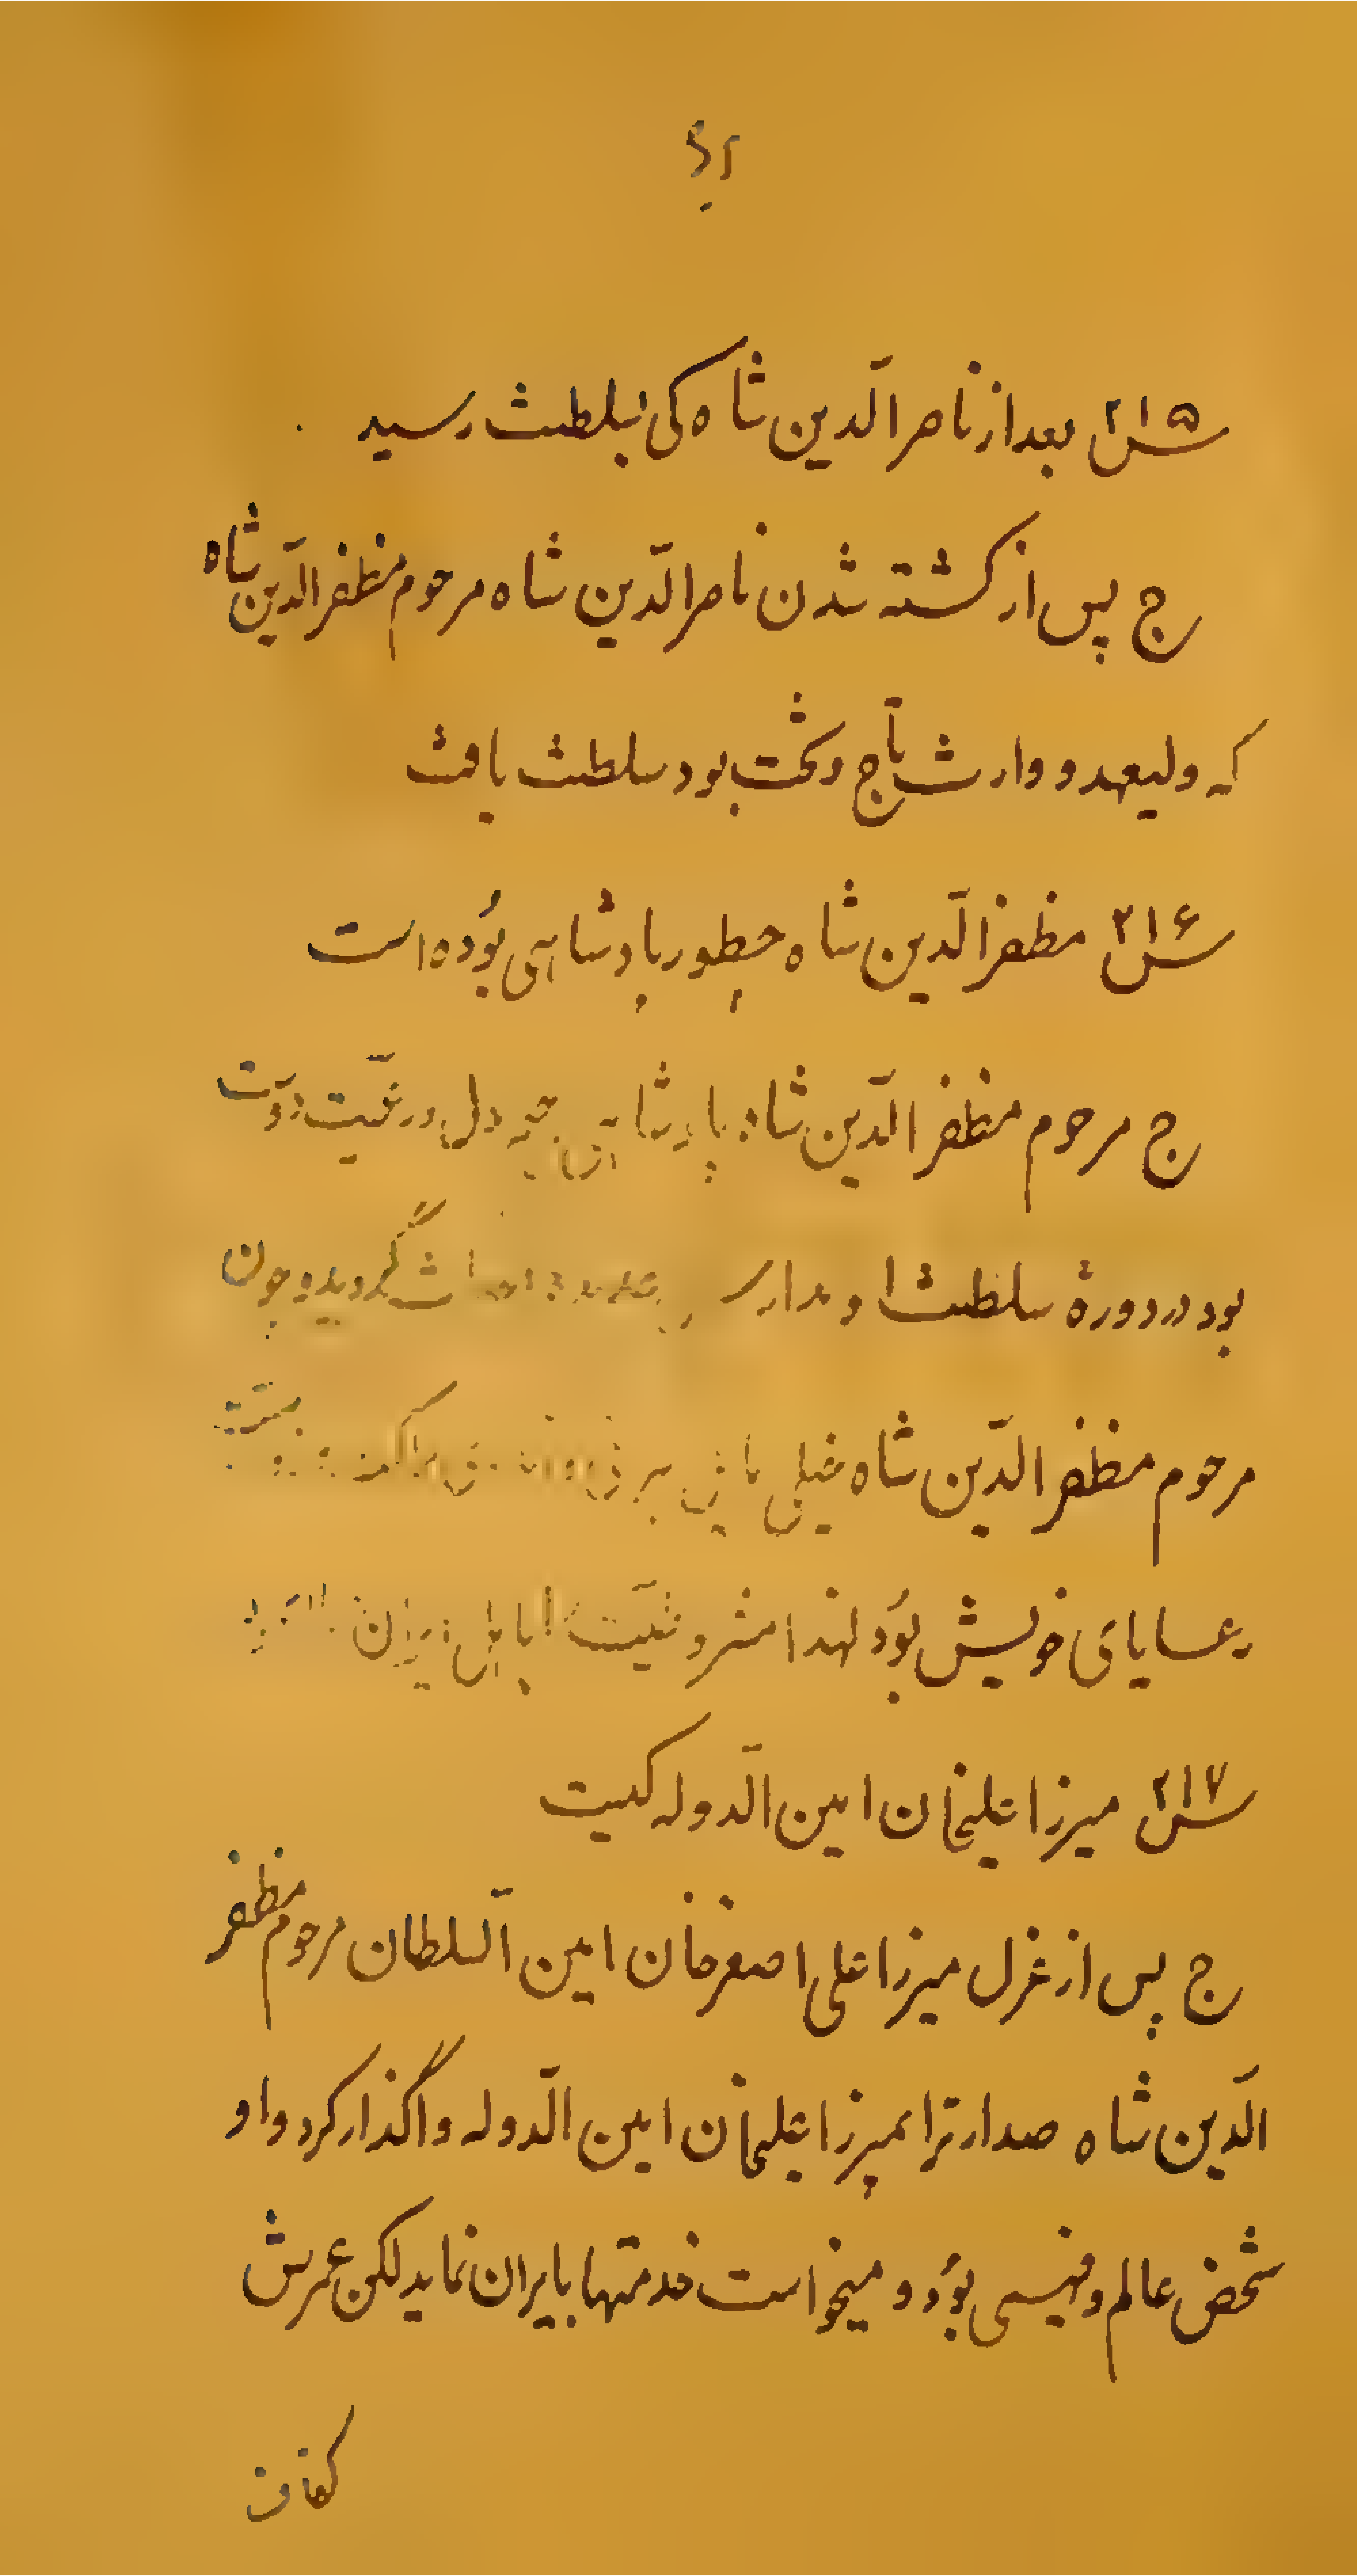 س ۲۱۵ بعد از ناصر الّدین شاه کی بسلطنت رسید
ج پس از کشته شدن ناصر الّدین شاه مرحوم مظفر الّدین شاه
که ولیعهد و وارث تاج و تخت بود سلطنت یافت
س ۲۱۶ مظفر الّدین شاه چطور پادشاهی بوده است
ج مرحوم مظفر الّدین شاه پادشاهی دل و رعیّت دوست
بود در دورهٔ سلطنت او مدارس گردید و چون
مرحوم مظفر الّدین شاه خیلی مایل
رعایای خویش بود لهذا مشروطیّت باهل ایران
س ۲۱۷ میرزا علیخان امین الّدوله کیست
ج پس از عزل میرزا علی اصغر خان امین السّلطان مرحوم مظفر
الّدین شاه صدارترا بمیرزا علیخان امین الّدوله واگذار کرد و او
شخص عالم و فهیمی بود و میخواست خدمتها بایران نماید لکن عمرش
کفاف